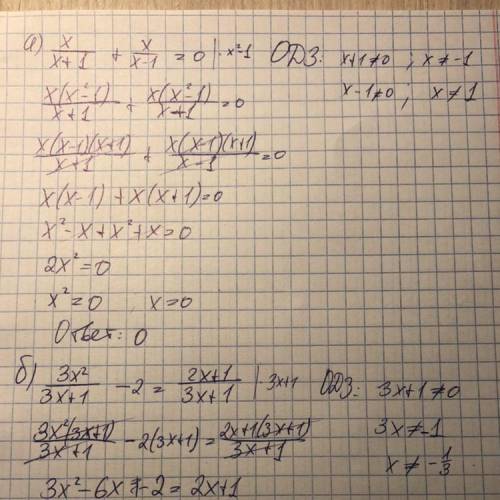 а) x/(x+1) + x/(x-1) = 0 |· x²-1 ОДЗ: x+1≠0 ; x≠-1
x-1≠0 ; x≠1
x(x²-1)/(x+1) + x(x²-1)/(x+1) = 0
x(x-1)(x+1)/(x+1) + x(x-1)(x+1)/(x-1) = 0
x(x-1) + x(x+1)=0
x²-x+x²+x=0
2x²=0
x²=0 x=0
Ответ: 0
б) 3x²/(3x+1) - 2 = (2x+1)/(3x+1) |· 3x+1 ОДЗ: 3x+1≠0
3x²(3x+1)/(3x+1) - 2(3x+1) = 2x+1(3x+1)/(3x+1) 3x≠-1
x≠-1/3
3x²-6x-2=2x+1